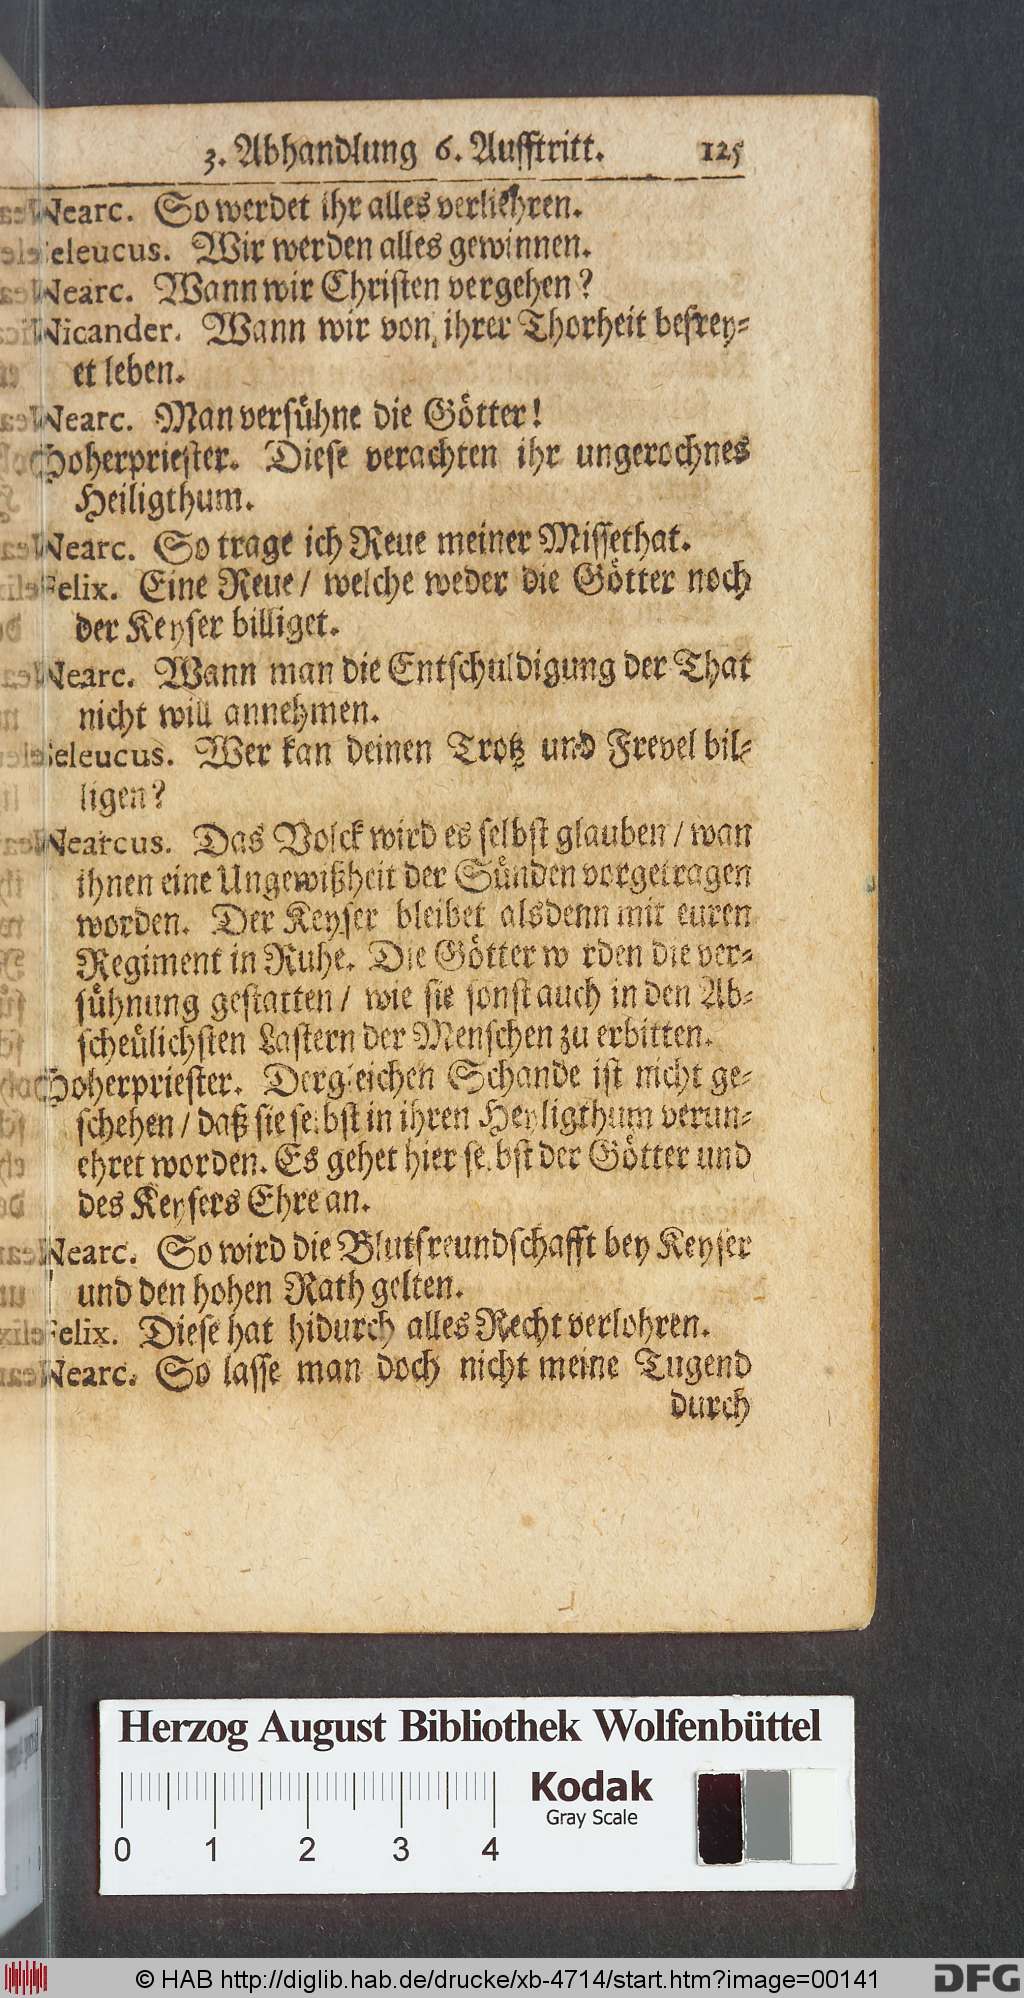 3. Abhandlung 6. Aufftritt. 125
Nearc. So werdet ihr alles verliehren.
Seleucus. Wir werden alles gewinnen.
Nearc. Wann wir Christen vergehen?
Nicander. Wann wir von ihrer Thorheit befrey-
et leben.
Nearc. Man versühne die Götter!
Hoherpriester. Diese verachten ihr ungerochnes
Heiligthum.
Nearc. So trage ich Reue meiner Missethat.
Felix. Eine Reue / welche weder die Götter noch
der Keyser billiget.
Nearc. Wann man die Entschuldigung der That
nicht will annehmen.
Seleucus. Wer kan deinen Trotz und Frevel bil-
ligen?
Nearcus. Das Volck wird es selbst glauben / wan
ihnen eine Ungewißheit der Sünden vorgetragen
worden. Der Keyser bleibet alsdenn mit euren
Regiment in Ruhe. Die Götter w rden die ver-
sühnung gestatten / wie sie sonst auch in den Ab-
scheülichsten Lastern der Menschen zu erbitten.
Hoherpriester. Dergleichen Schande ist nicht ge-
schehen / daß sie selbst in ihren Heyligthum verun-
ehret worden. Es gehet hier selbst der Götter und
des Keysers Ehre an.
Nearc. So wird die Blutfreundschafft bey Keyser
und den hohen Rath gelten.
Felix. Diese hat hidurch alles Recht verlohren.
Nearc. So lasse man doch nicht meine Tugend
durch
Herzog August Bibliothek Wolfenbüttel
Kodak
Gray Scale
0 1 2 3 4
© HAB http://diglib.hab.de/drucke/xb-4714/start.htm?image=00141
DFG